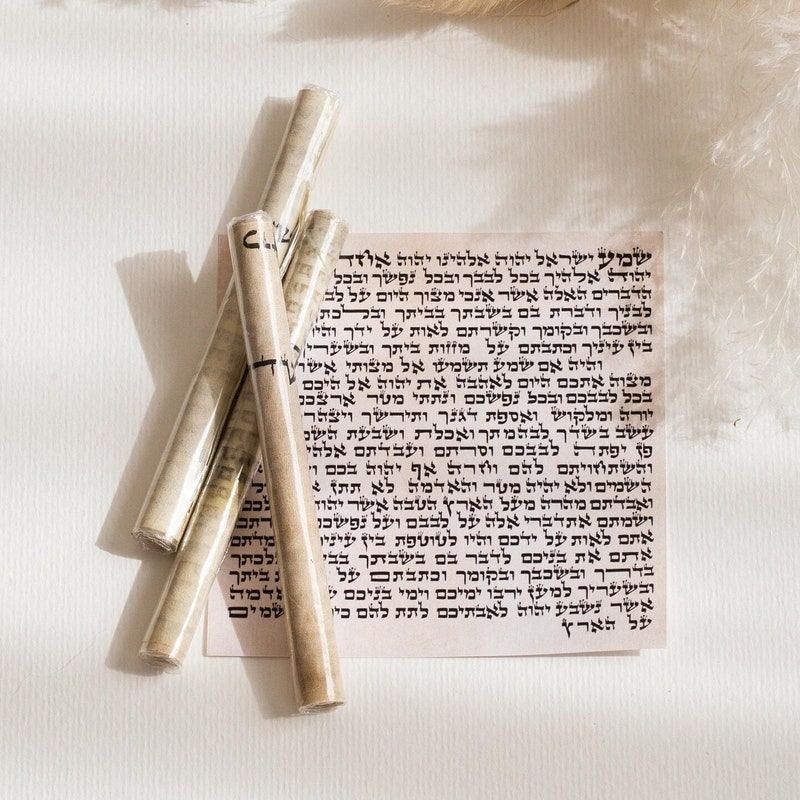 שמע ישראל יהוה אלהינו יהוה אחד
יהוה אלהיך בכל לבבך ובכל נפשך ובכל
הדברים האלה אשר אנכי מצוך היום על
לבניך ודברת בם בשבתך בביתך ובלכתך
ובשכבך ובקומך וקשרתם לאות על ידך והיו
בין עיניך וכתבתם על מזזות ביתך
והיה אם שמע תשמעו אל מצותי אשר
מצוה אתכם היום לאהבה את יהוה אל היכם
בכל לבבכם ובכל נפשכם ונתתי מטר ארצכם
יורה ומלקוש ואספת דגנך ותירשך
עשב בשדך לבהמתך ואכלת ושבעת
פן יפתה לבבכם וסרתם ועבדתם
והשתחויתם להם וחרה אף יהוה בכם
השמים ולא יהיה מטר והאדמה לא תתן
ואבדתם מהרה מעל הארץ הטבה אשר יהוה
ושמתם את דברי אלה על לבבם ועל
אתם לאות על ידכם והיו לטוטפת בין
אתם את בניכם לדבר בם בשבתך
בדרך ובשכבך ובקומך וכתבתם על ביתך
ובשעריך למען ירבו ימיכם וימי בניכם
אשר נשבע יהוה לאבתיכם לתת להם
על הארץ